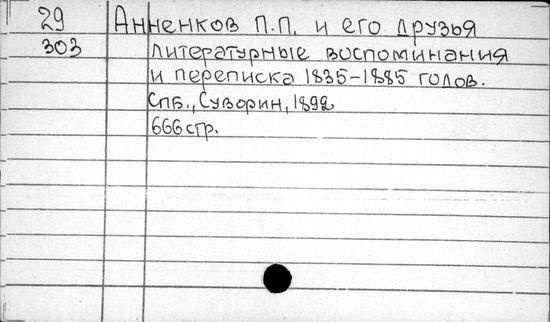 29 Анненков П.П. и его друзья
303 литературные воспоминания
и переписка 1835-1885 годов.
Спб., Суворин, 1892
666 стр.